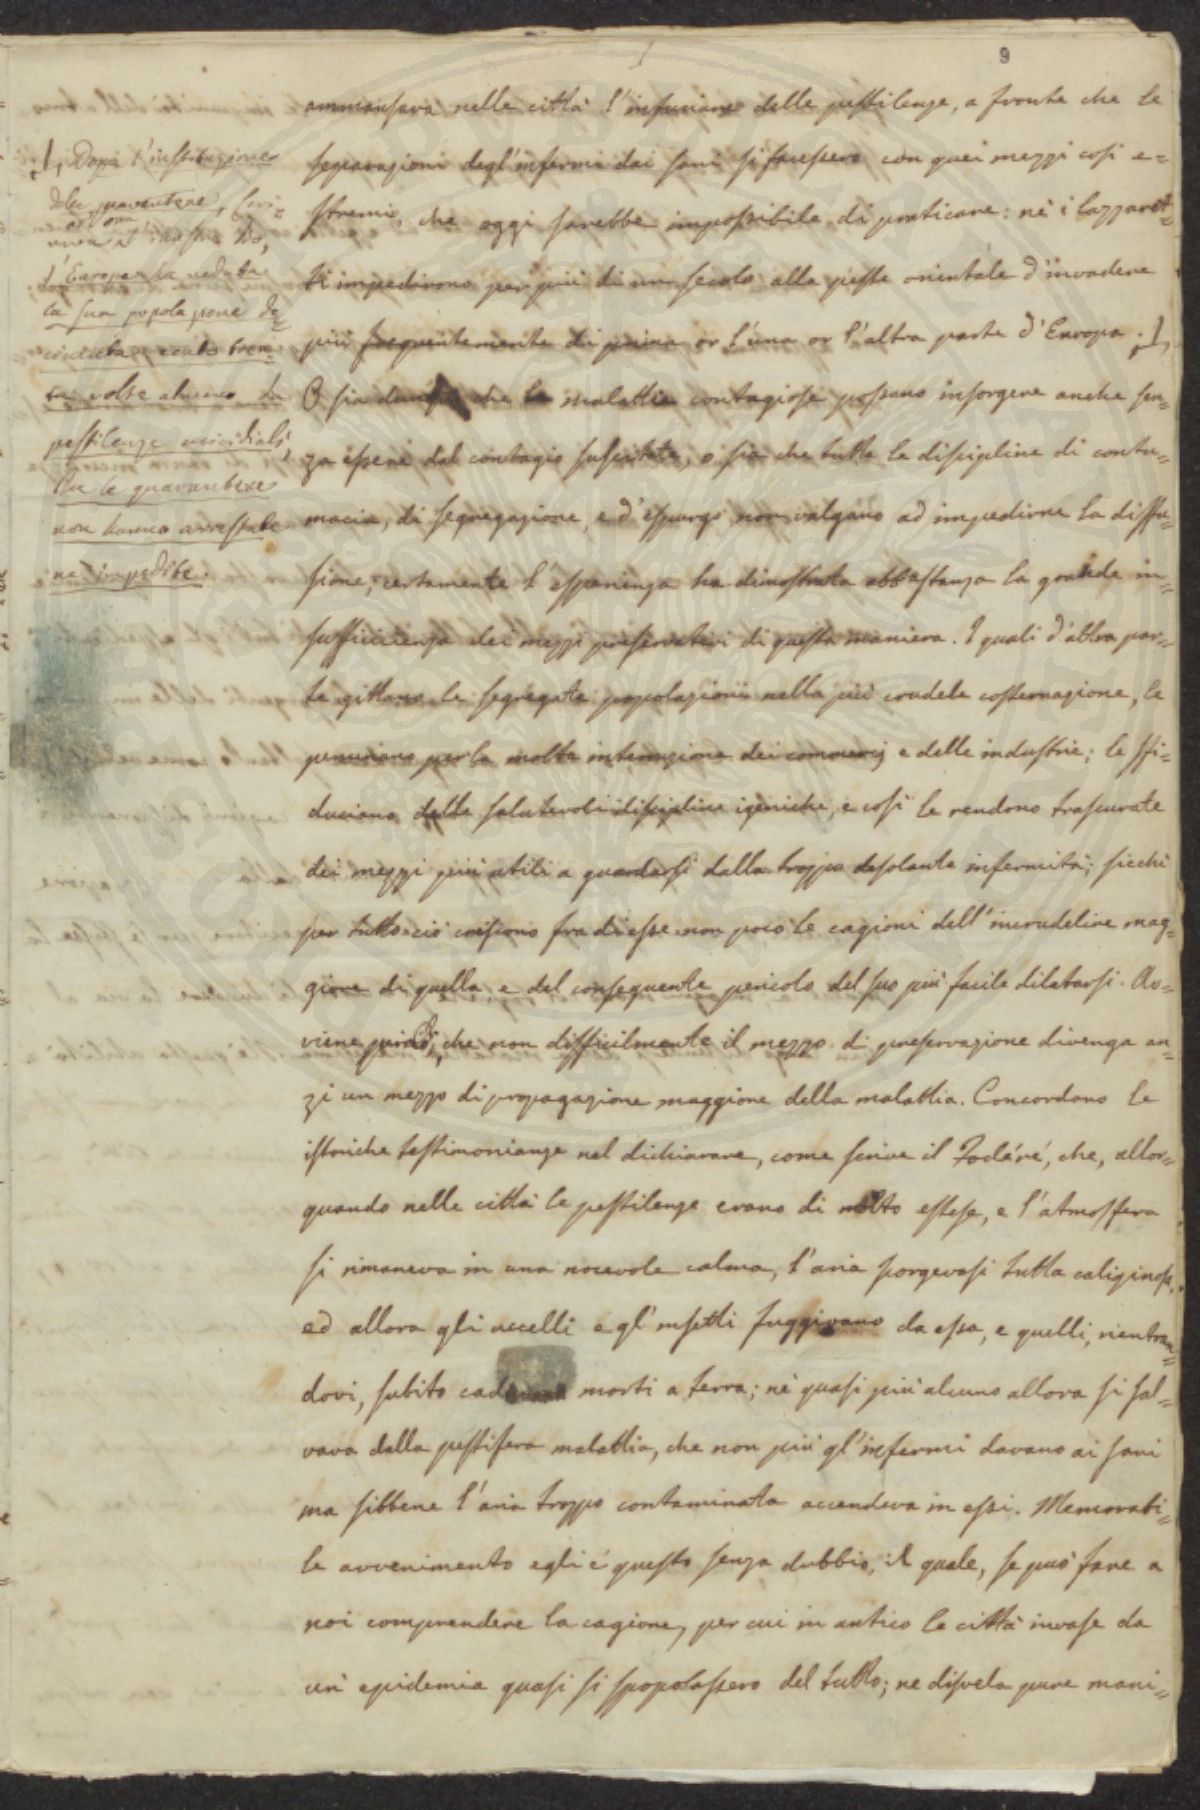 9
ammansava nelle città l'infuriare delle pestilenze, a fronte che le
separazioni degl'infermi dai sani si facessero con quei mezzi così e=
stremi, che oggi sarebbe impossibile di praticare: nè i lazzaret=
ti impedirono per più di un secolo alla peste orientale d'invadere
più frequentemente di prima or l'una or l'altra parte d'Europa.
O sia dunque che le malattie contagiose possano insorgere anche sen=
za essere dal contagio suscitate, o sia che tutte le discipline di contu=
macia, di segregazione, e d'espurgo non valgano ad impedirne la diffu=
sione; certamente l'esperienza ha dimostrata abbastanza la grande in=
sufficienza dei mezzi preservativi di questa maniera. I quali d'altra par=
te gittano le segregate popolazioni nella più crudele costernazione, le
penuriano per la molta interruzione dei commercj e delle industrie; le sfi=
duciano delle salutevoli discipline igeniche, e così le rendono trascurate
dei mezzi più utili a guardarsi dalla troppo desolante infermità; sicchè
per tutto ciò crescono fra di esse non poco le cagioni dell'incrudelire mag=
giore di quella, e del conseguente pericolo del suo più facile dilatarsi. Av=
viene perciò, che non difficilmente il mezzo di preservazione divenga an=
zi un mezzo di propagazione maggiore della malattia. Concordano le
istoriche testimonianze nel dichiarare, come scrive il Foderé, che, allor=
quando nelle città le pestilenze erano di molto estese, e l'atmosfera
si rimaneva in una nocevole calma, l'aria porgevasi tutta caliginosa,
ed allora gli uccelli e gl'insetti fuggivano da essa, e quelli, rientran=
dovi, subito cadevano morti a terra; nè quasi più alcuno allora si sal=
vava dalla pestifera malattia, che non più gl'infermi davano ai sani
ma sibbene l'aria troppo contaminata accendeva in essi. Memorabi=
le avvenimento egli è questo senza dubbio, il quale, se può fare a
noi comprendere la cagione, per cui in antico le città invase da
un'epidemia quasi si spopolassero del tutto; ne disvela pure mani=
Dopo l'instituzione
delle quarantene,
l'Europa ha veduta
la sua popolazione de=
cimata cento tren=
ta volte almeno da
pestilenze micidiali,
che le quarantene
non hanno arrestate
nè impedite.